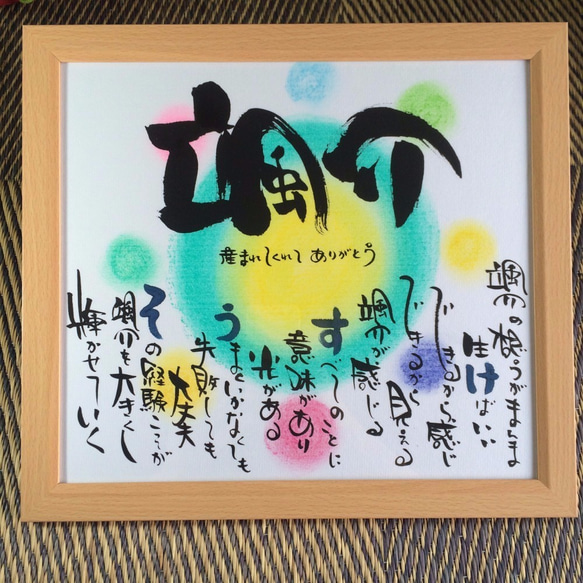 颯介
産まれてくれて ありがとう
颯介の想うがまま
生けばいい
できるから感じ
できるから見える
颯介が感じる
すべてのことに
意味があり
光がある
うまくいかなくても
失敗しても
大丈夫
その経験こそが
颯介を大きくし
輝かせていく